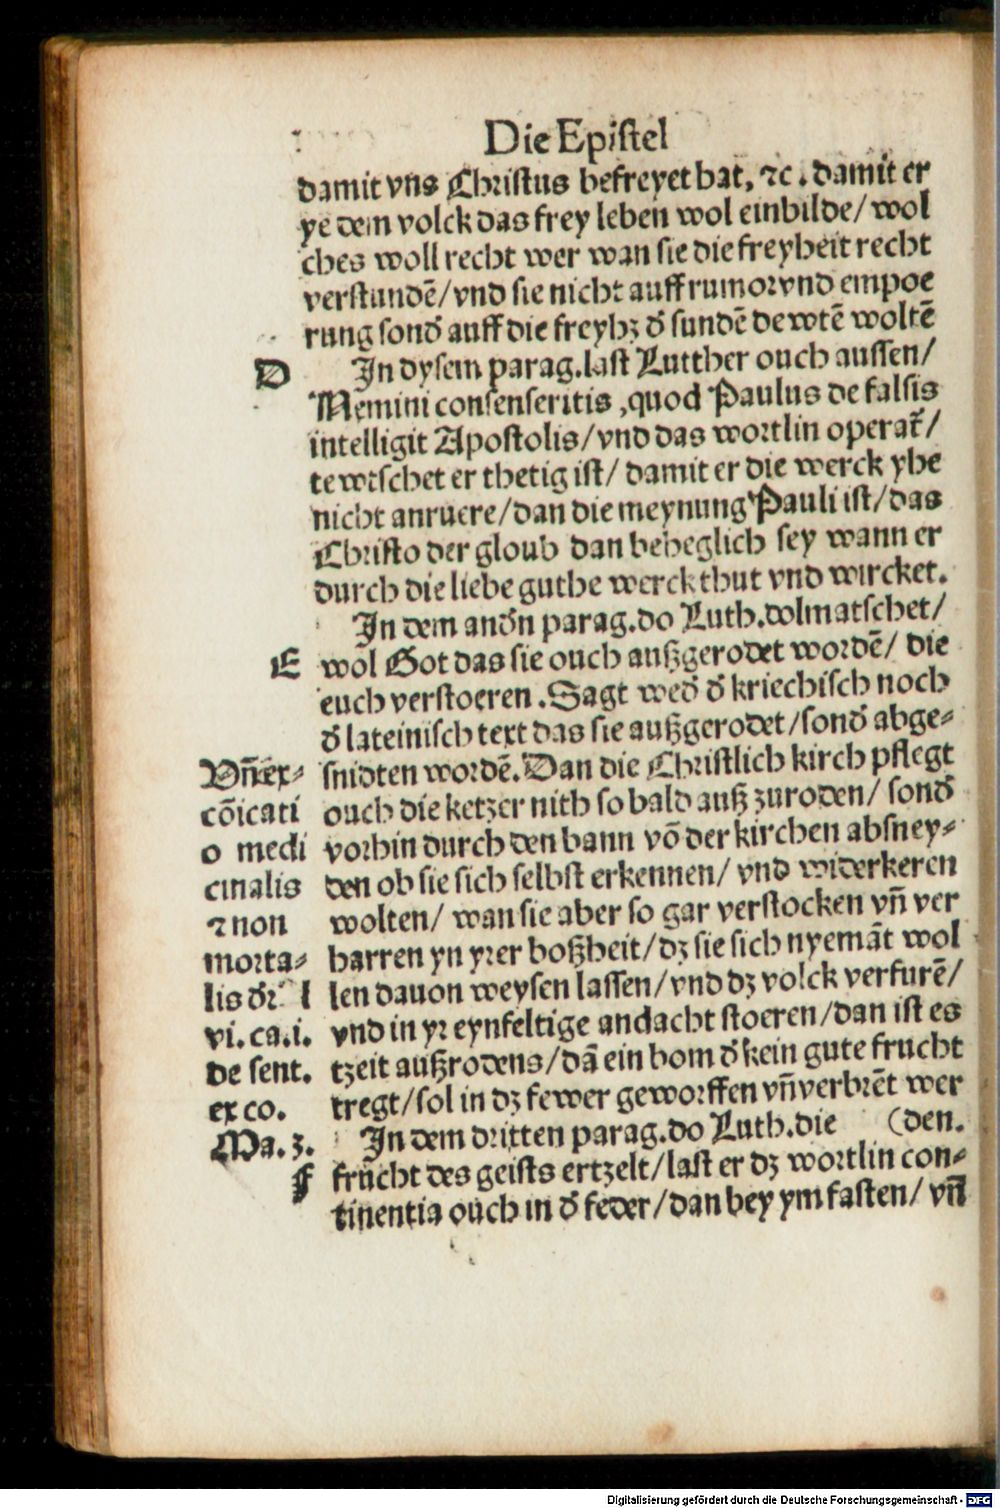 Die Epistel
damit vns Christus befreyet hat, ⁊c. damit er
ye dem volck das frey leben wol einbilde/ wol
ches woll recht wer wan sie die freyheit recht
verstundē/ vnd sie nicht auff rumor vnd empoe
rung sond̕ auff die freyhʒ d̕ sundē dewtē woltē
D
In dysem parag. last Lutther ouch aussen/
Nemini consenseritis, quod Paulus de falsis
intelligit Apostolis/ vnd das wortlin operat̄/
tewtschet er thetig ist/ damit er die werck yhe
nicht anruere/ dan die meynung Pauli ist/ das
Christo der gloub dan beheglich sey wann er
durch die liebe guthe werck thut vnd wircket.
In dem and̕n parag. do Luth. dolmatschet/
E
wol Got das sie ouch außgerodet wordē/ die
euch verstoeren. Sagt wed̕ d̕ kriechisch noch
d̕ lateinisch text das sie außgerodet/ sond̕ abge⸗
snidten wordē. Dan die Christlich kirch pflegt
ouch die ketzer nith so bald auß zuroden/ sond̕
vorhin durch den bann vō der kirchen absney⸗
den ob sie sich selbst erkennen/ vnd widerkeren
wolten/ wan sie aber so gar verstocken vn̄ ver
harren yn yrer boßheit/ dʒ sie sich nyemāt wol
len dauon weysen lassen/ vnd dʒ volck verfurē/
vnd in yr eynfeltige andacht stoeren/ dan ist es
tzeit außrodens/ dā ein bom d̕ kein gute frucht
tregt/ sol in dʒ fewer geworffen vn̄ verbrēt wer
(den.
Vn̄ ex⸗
cōicati
o medi
cinalis
⁊ non
morta⸗
lis l
vi. ca. i.
de sent.
ex co.
Ma. 3.
In dem dritten parag. do Luth. die
F
frucht des geists ertzelt/ last er dʒ wortlin con⸗
tinentia ouch in d̕ feder/ dan bey ym fasten/ vn̄
Digitalisierung gefördert durch die Deutsche Forschungsgemeinschaft - DFG